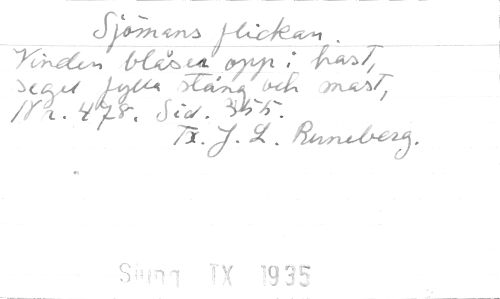 Sjömans flickan.
Vinden blåser opp i hast,
segel fylla stång och mast,
Nr. 478. Sid. 355.
Tx. J. L. Runeberg.
TX 1935